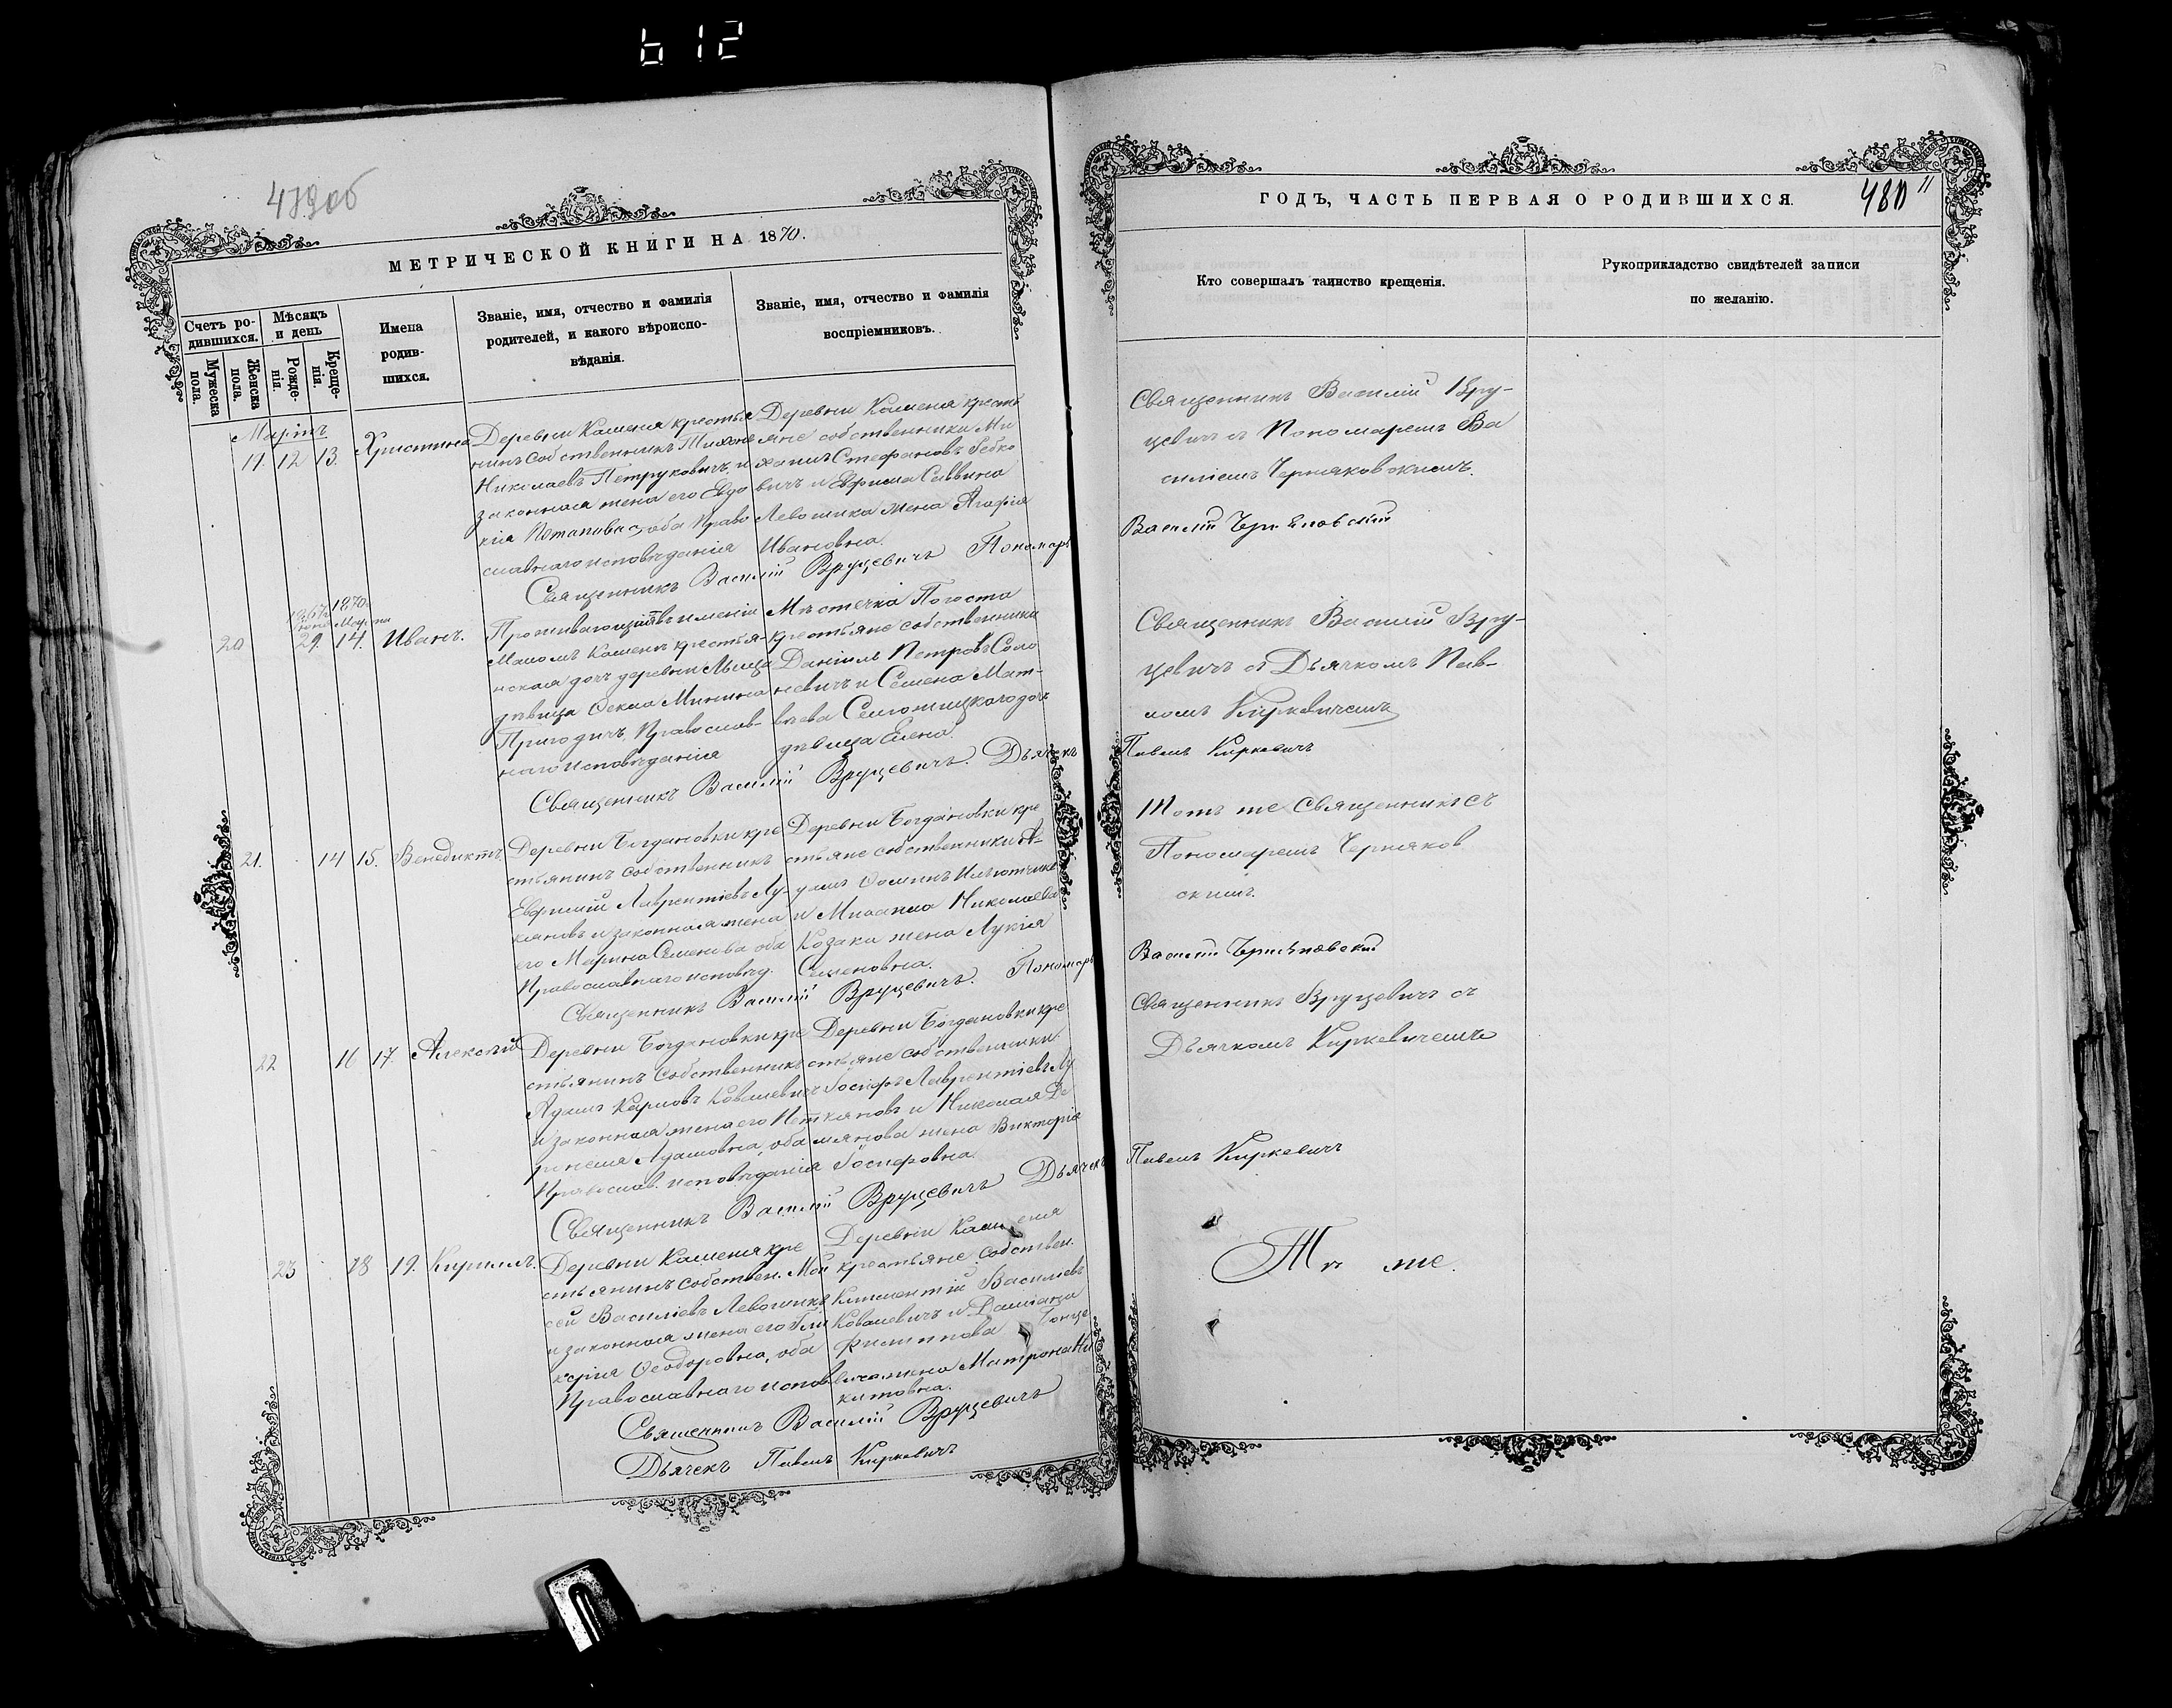 612
479об
МЕТРИЧЕСКОЙ КНИГИ НА 1870.
Счетъ ро-
дившихся.
Мужеска
пола.
Женска
пола.
Мѣсяцъ
и день
Рожде-
нія.
Креще-
нія.
Имена
родив-
шихся.
Званіе, имя, отчество и фамилія
родителей, и какого вѣроиспо-
вѣданія.
Званіе, имя, отчество и фамилія
воспріемниковъ.
Мартъ
19. 12 13. Христина
Деревни Каменя крестья
нинъ собственникъ Тихонъ
Николаевъ Петруковичъ и
законная жена его Евдо
кія Потапова, оба право
славнаго исповѣданія
Деревни Каменя кресть
яне собственники Ми
хаилъ Стефановъ
вичъ и Ефрима Саввина
Левошика жена Агафія
Ивановна.
Священникъ Василій Вруцевичъ Пономарь
1870
Марта
20 29. 14. Иванъ.
Проживающая въ имѣніи
Маломъ Каменѣ крестья-
нская дочь деревни
дѣвица Ѳекла Минина
Пригодичъ, Православ-
наго исповѣданія
Мѣстечка Погоста
крестьяне собственники
Даніилъ Петровъ Соло
невичъ и Семена Мат-
вѣева дочь
дѣвица Елена.
Священникъ Василій Вруцевичъ. Дьячекъ
21. 14 15. Венедиктъ,
Деревни Богдановки кре
стьянинъ собственникъ
Евфимій Лаврентіевъ Лу-
кяновъ и законная жена
его Марина Семенова оба
Православнаго исповѣд.
Деревни Богдановки кре
стьяне собственники А-
дамъ Ѳоминъ
и Михаила Николаева
Козака жена Лукія
Семеновна.
Священникъ Василій Вруцевичъ. Пономарь
22 16 17. Алексѣй
Деревни Богдановки кре
стьянинъ Собственникъ
Адамъ Карповъ Ковалевичъ
и законная жена его Пет
ронеля Адамовна, оба
Православ. исповѣданія
Деревни Богдановки кре
стьяне собственники
Іосифъ Лаврентіевъ Лу
кяновъ и Николая Де
мянова жена Викторія
Іосифовна
Священникъ Василій Вруцевичъ Дьячекъ
23 18 19. Кириллъ.
Деревни Каменя кре
стьянинъ собствен. Мой
сей Василіевъ Левошикъ
и законная жена его Гли
керія Ѳеодоровна, оба
Православнаго испов
Деревни Каменя
крестьяне собствен.
Климентій Василіевъ
Ковалевичъ и Даміана
Филиппова
жена Матрона Ни
китовна.
Священникъ Василій Вруцевичъ
Дьячекъ Павелъ Киркевичъ
ГОДЪ, ЧАСТЬ ПЕРВАЯ О РОДИВШИХСЯ.
480 11
Кто совершалъ таинство крещенія.
Рукоприкладство свидѣтелей записи
по желанію.
Священникъ Василій Вру-
цевичъ съ Пономаремъ Ва
силіемъ Черняковскимъ.
Василій Черняковскій
Священникъ Василій Вру-
цевичъ съ Дьячкомъ Пав-
ломъ Киркевичемъ
Павелъ Киркевичъ
Тотъ же Священникъ съ
Пономаремъ Черняков
скимъ.
Василій Черняковскій
Священникъ Вруцевичъ съ
Дьячкомъ Киркевичемъ
Павелъ Киркевичъ
Тѣ же.